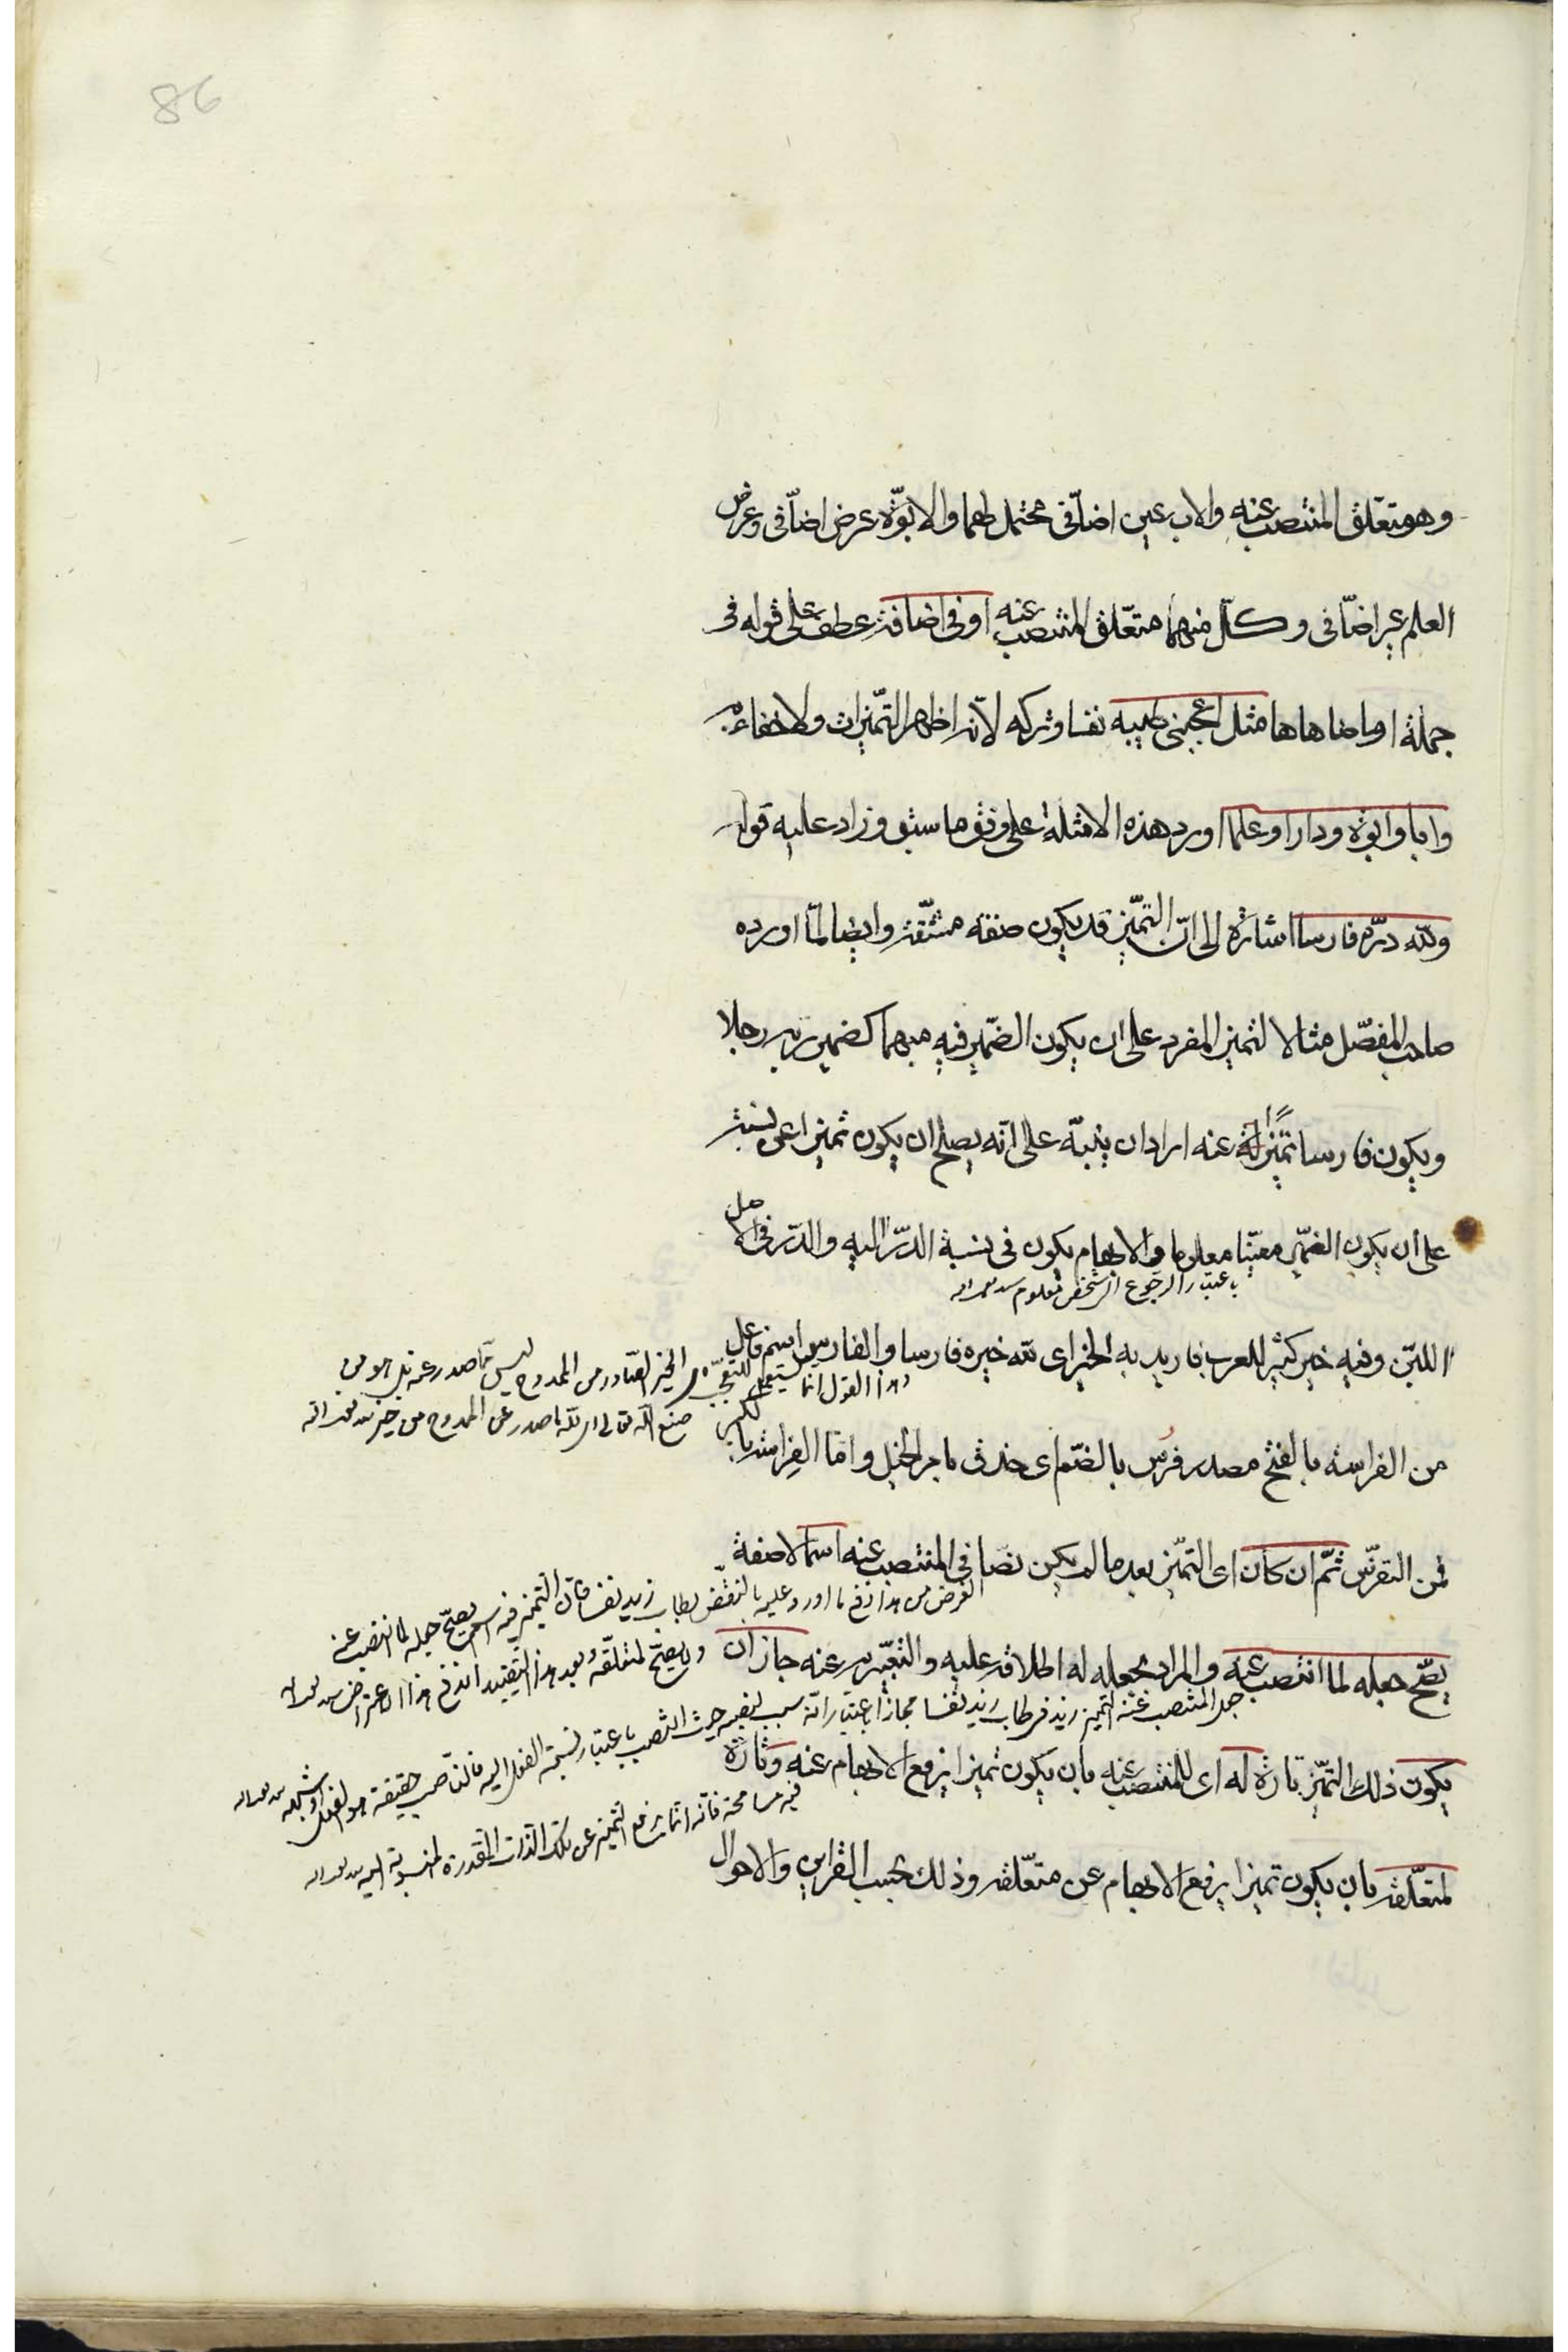 86
وهو متعلق المنتصب عنه والاب عين اضافى محتمل لهما والابوة عرض اضافى وعرض
العلم غير اضافى وكل منهما متعلق المنتصب عنه او فى اضافة عطف على قوله فى
جملة او ما ضاهاها مثل اعجبنى طيبه نفسا وتركه لانه اظهر التميزات ولا خفاء به
وابا وابوة ودارا وعلما اورد هذه الامثلة على وفق ما سبق وزاد عليه قوله
ولله دره فارسا اشارة الى ان التميز قد يكون صفة مشتقة وايضا لما اورده
صاحب المفصل مثالا لتميز المفرد على ان يكون الضمير فيه مبهما كضمير ربه رجلا
ويكون فارسا تميزا له عنه اراد ان ينبه على انه يصلح ان يكون تميزا عن نسبة
على ان يكون الضمير معينا معلوما والابهام يكون فى نسبة الدر اليه والدر فى الاصل
باعتبار الرجوع الى شخص معلوم
اللبن وفيه خير كثير للعرب فاريد به الخير اى لله خيره فارسا والفارس اسم فاعل
وهذا القول انما يستعمل للتعجب الخير الصادر من الممدوح ليس مما صدر عنه بل هو من
صنع الله تعالى اى لله ما صدر عن الممدوح من خير
من الفراسة بالفتح مصدر فرس بالضم اى حذق بامر الخيل واما الفراسة بالكسر
فمن التفرس ثم ان كان اى التميز بعد ما لم يكن نصا فى المنتصب عنه اسما لا صفة
الغرض من هذا دفع ما اورد عليه بالنقض بطاب زيد نفسا فان التميز فيه اسم يصح جعله لما انتصب عنه
ولا يصح لمتعلقه وبعد هذا التقييد اندفع هذا الاعتراض
يصح جعله لما انتصب عنه والمراد بجعله له اطلاقه عليه والتعبير به عنه جاز ان
جعل المنتصب عنه التميز زيد فى طاب زيد نفسا مجازا باعتبار انه سبب لنصبه حيث انتصب باعتبار نسبة الفعل اليه فالناصب حقيقة هو الفعل او شبهه
يكون ذلك التميز تارة له اى للمنتصب عنه بان يكون تميزا يرفع الابهام عنه وتارة
فيه مسامحة فانه انما يرفع التميز عن تلك الذات المقدرة المنسوبة اليه
لمتعلقه بان يكون تميزا يرفع الابهام عن متعلقه وذلك بحسب القراين والاحوال